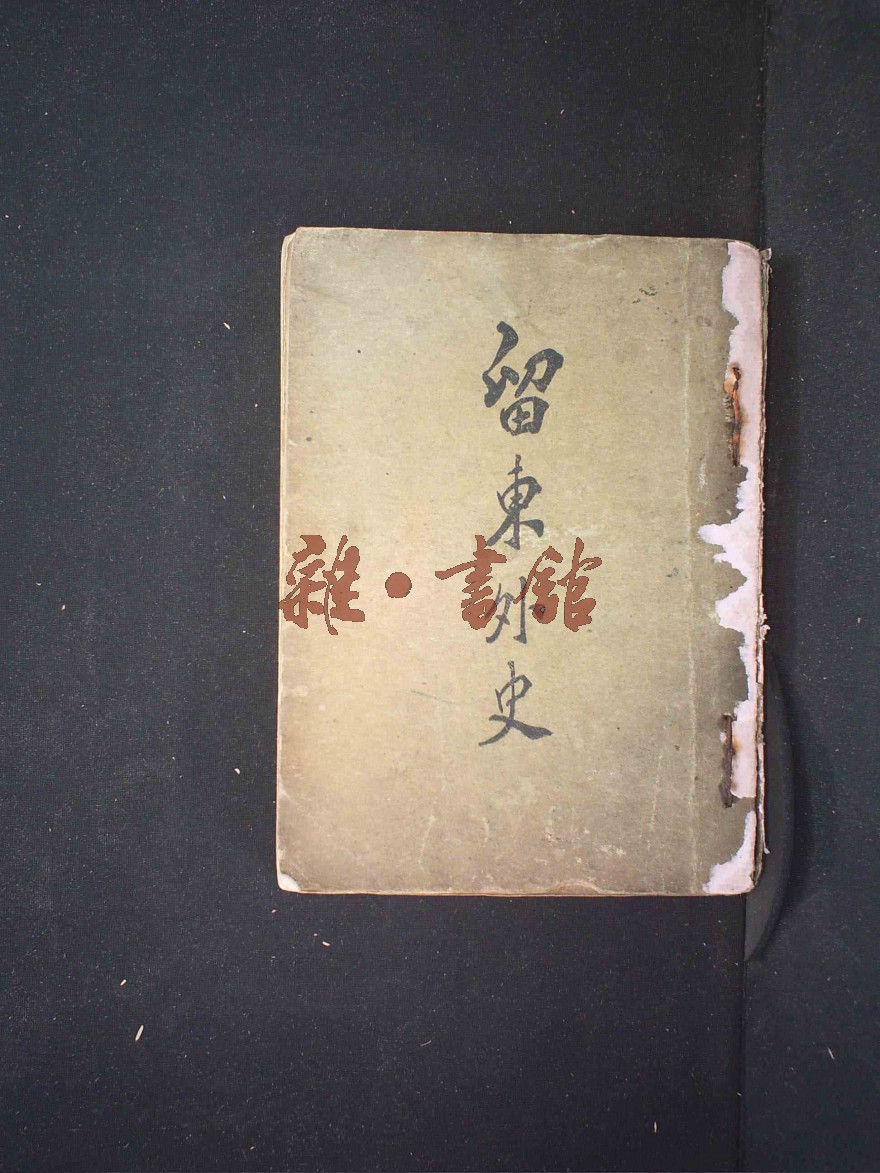 留東外史
雜·書館